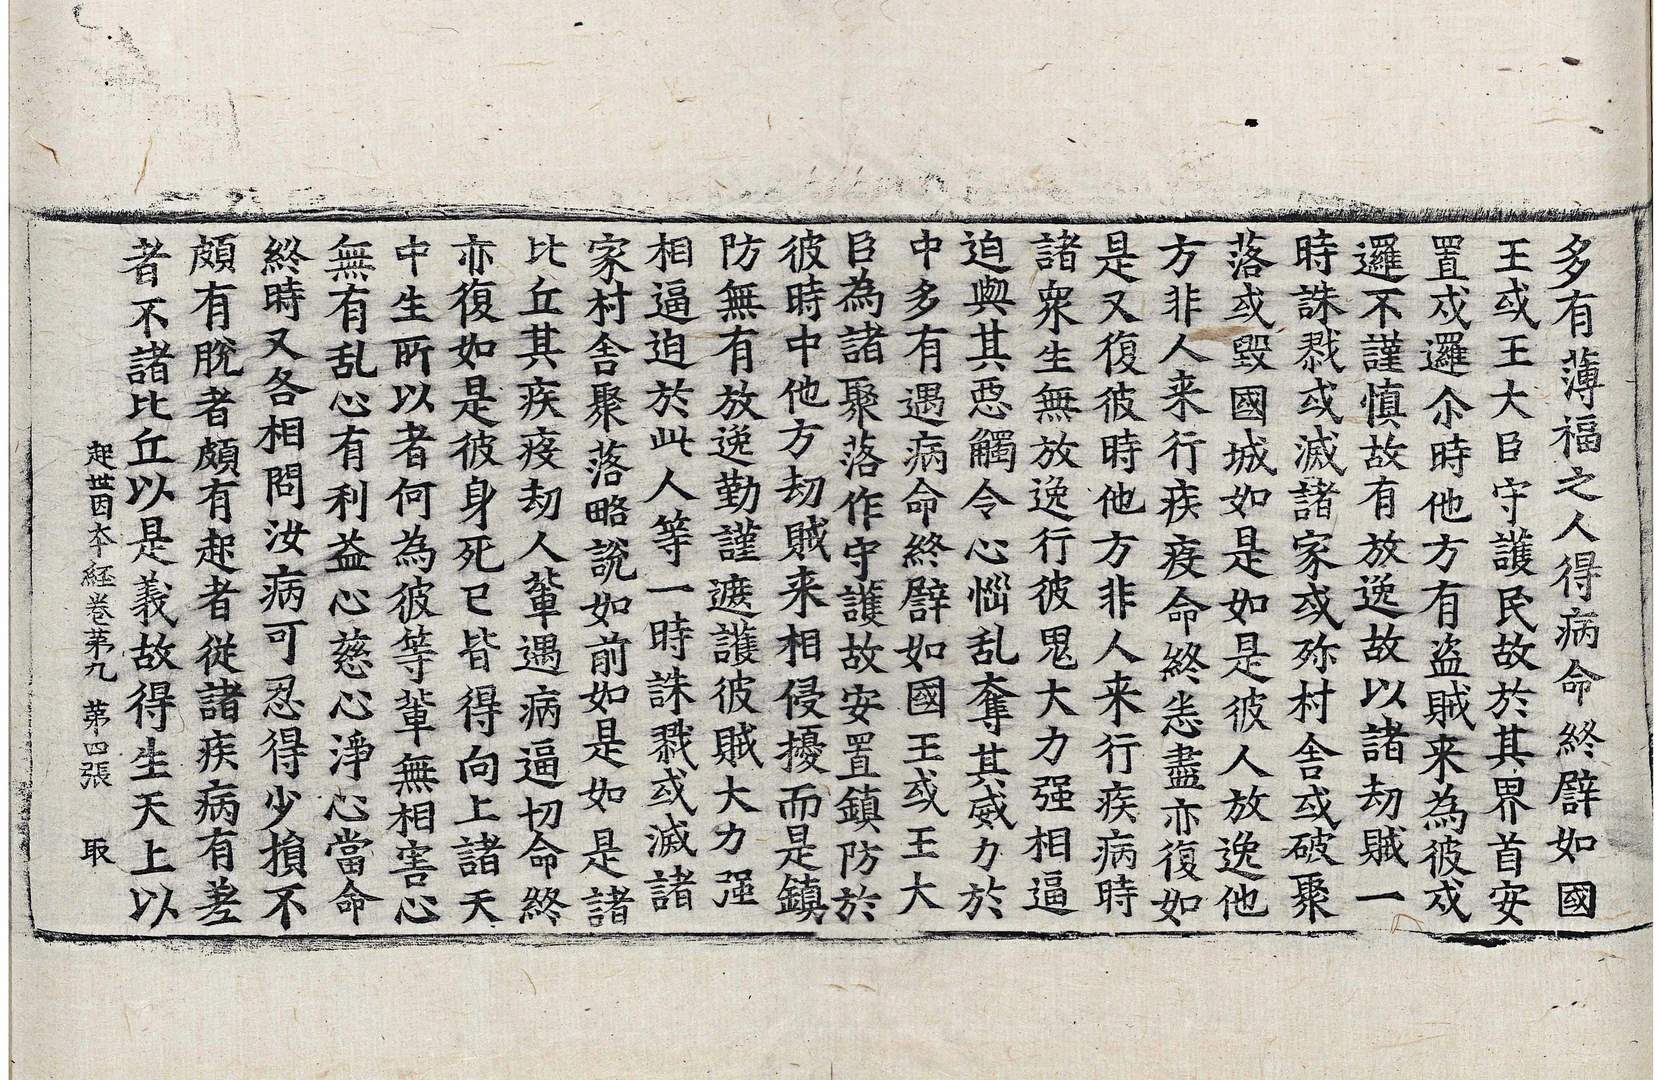 多有薄福之人得病命終譬如國
王或王大臣守護民故於其界首安
置戍邏尒時他方有盜賊来為彼戍
邏不謹慎故有放逸故以諸劫賊一
時誅戮或滅諸家或殄村舍或破聚
落或毀國城如是如是彼人放逸他
方非人来行疾疫命終恙盡亦復如
是又復彼時他方非人来行疾病時
諸衆生無放逸行彼鬼大力强相逼
迫與其惡觸令心惱乱奪其威力於
中多有遇病命終譬如國王或王大
臣為諸聚落作守護故安置鎮防於
彼時中他方劫賊来相侵擾而是鎮
防無有放逸勤謹遮護彼賊大力强
相逼迫於此人等一時誅戮或滅諸
家村舍聚落略說如前如是如是諸
比丘其疾疫劫人軰遇病逼切命終
亦復如是彼身死已皆得向上諸天
中生所以者何為彼等軰無相害心
無有乱心有利益心慈心淨心當命
終時又各相問汝病可忍得少損不
頗有脫者頗有起者從諸疾病有差
者不諸比丘以是義故得生天上以
起世因夲經卷苐九　苐四張　取